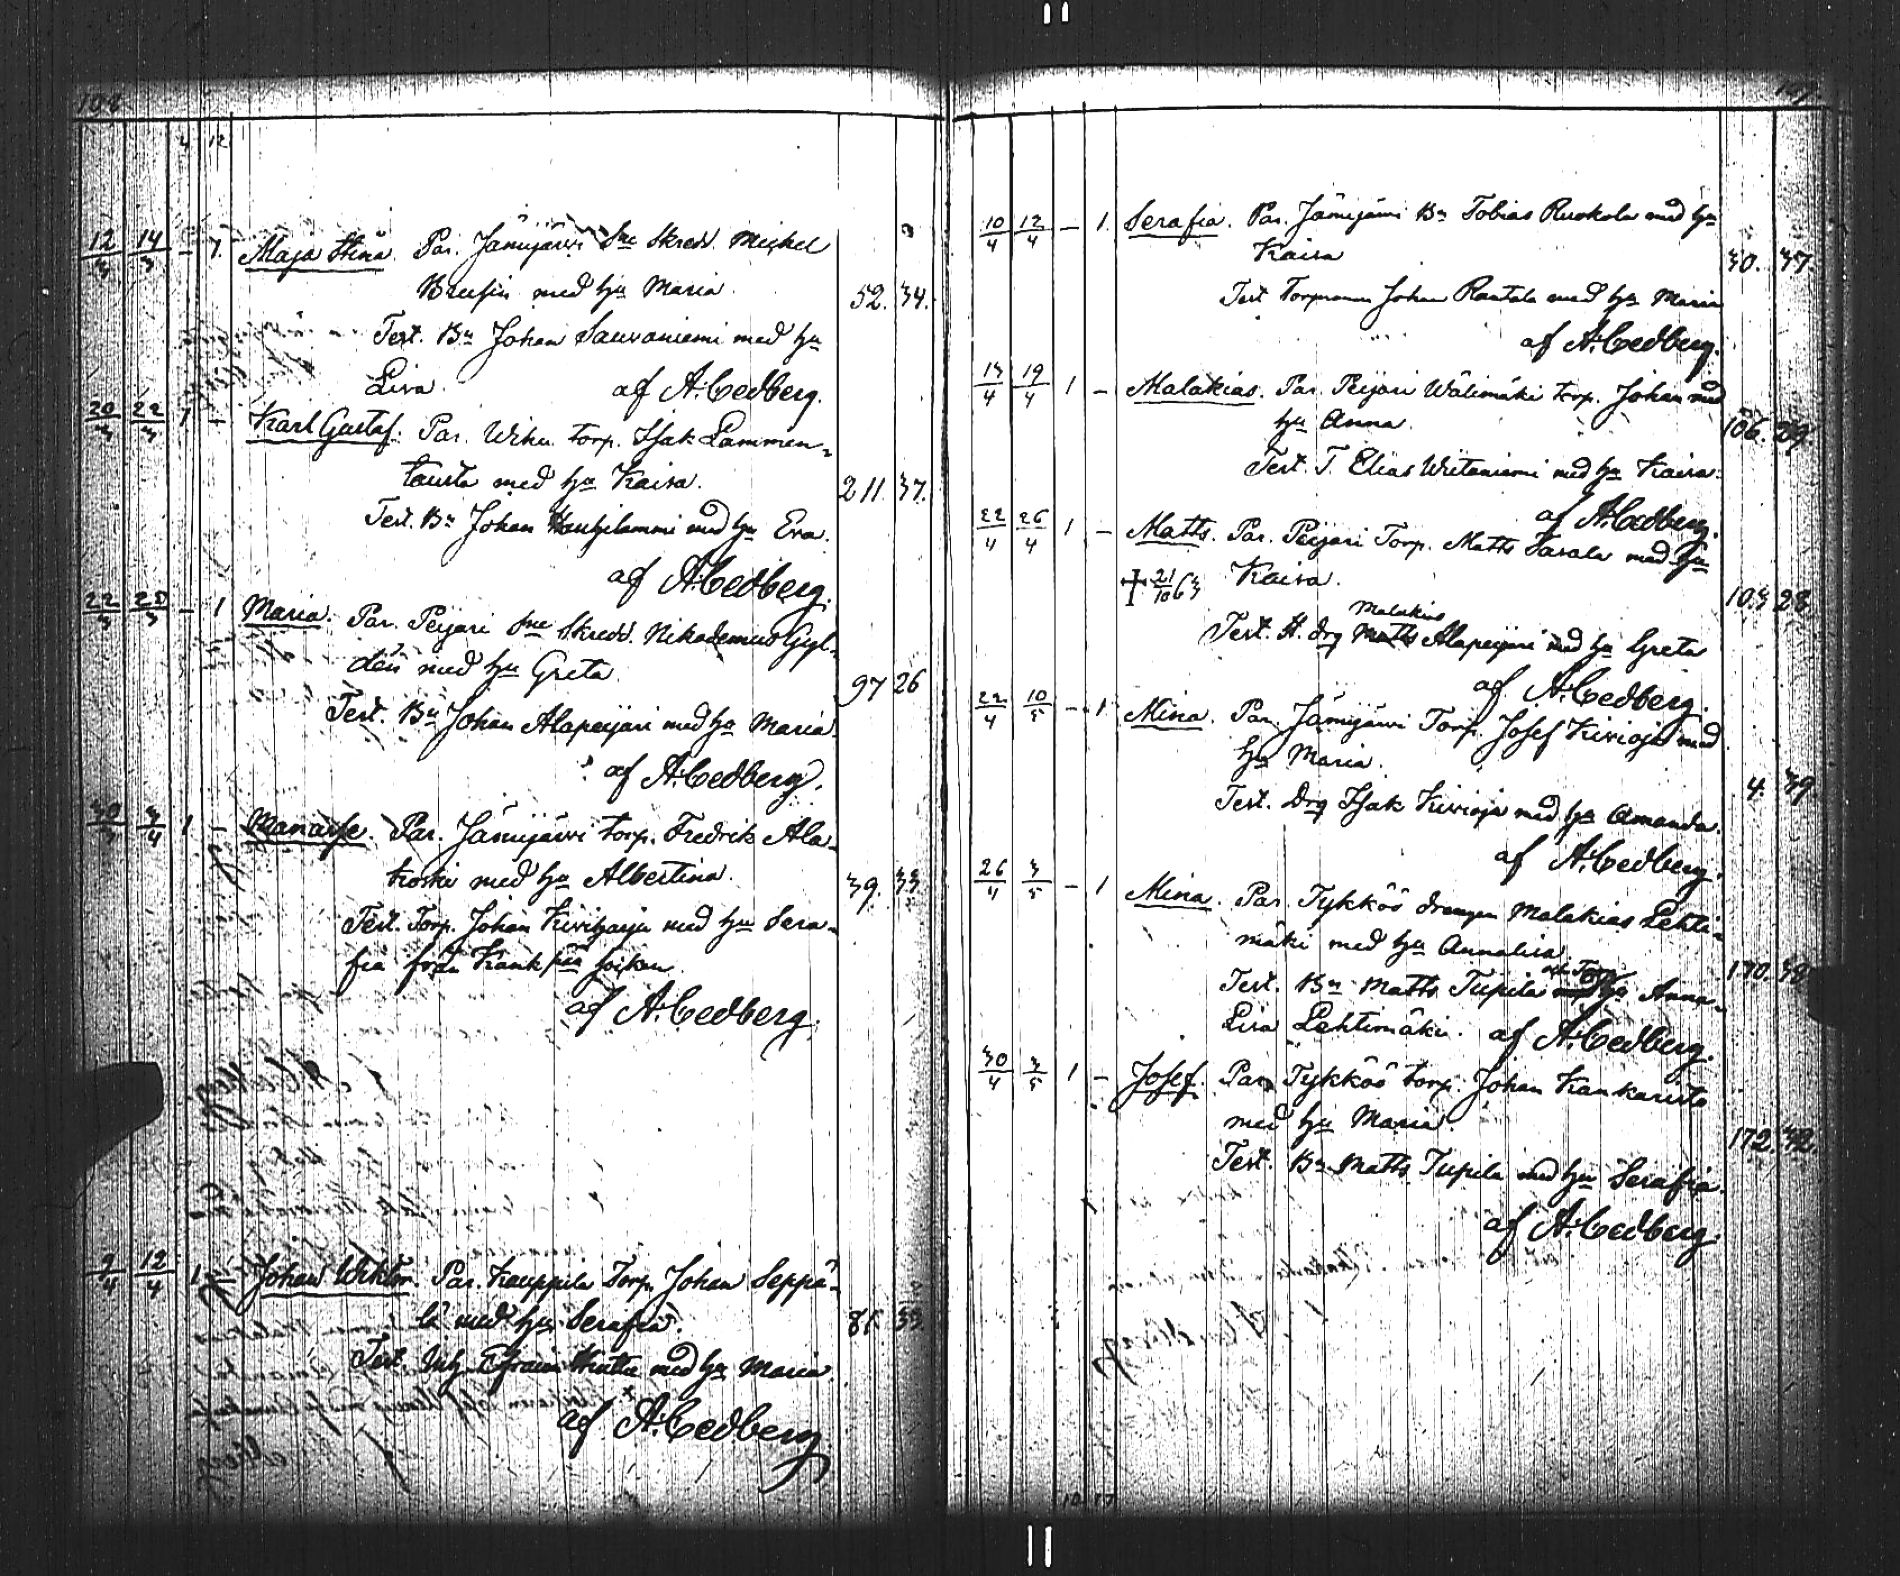 108
4 12
12/3 14/3 – 1. Maja Stina. Par. Jämijärvi Sne Skredd. Michel
med hu Maria. 52. 34.
Test. Bn Johan Sauvaniemi med hu
Lisa. af A. Cedberg.
20/3 22/3 1 – Karl Gustaf. Par. Wihu torp. Isak Lammen-
tausta med hu Kaisa. 211. 37.
Test. Bn Johan med hu Eva.
af A. Cedberg.
22/3 25/3 – 1 Maria. Par. Peijari Sne Skredd. Nikodemus Gyl-
dén med hu Greta. 97 26
Test. Bn Johan Alapeijari med hu Maria.
af A. Cedberg.
30/3 3/4 1 – Manasse. Par. Jämijärvi torp. Fredrik Ala-
koski med hu Albertina. 39. 33.
Test. Torp. Johan Kiviharju med hu Sera-
fia från Kank
af A. Cedberg.
9/4 12/4 1 – Johan Wiktor. Par. Kauppila Torp. Johan Seppä-
lä med hu Serafia. 81. 32.
Test. Inh. Efraim med hu Maria
af A. Cedberg
10/4 12/4 – 1. Serafia. Par. Jämijärvi Bn Tobias Ruokola med hu
Kaisa 30. 37.
Test Torpmann Johan Rantala med hu Maria
af A. Cedberg.
13/4 19/4 1 – Malakias. Par. Peijari Wälimäki torp. Johan med
hu Anna. 106. 29.
Test. T. Elias Wiitaniemi med hu Kaisa.
af A. Cedberg.
22/4 26/4 1 – Matts. Par. Peijari Torp. Matts Sasala med hu
† 21/10 63 Kaisa. 103 28.
Malakias
Test. H. drg Matts Alapeijari med hu Greta
af A. Cedberg.
22/4 10/5 – 1. Mina. Par. Jämijärvi Torp. Josef Kivioja med
hu Maria. 4. 39
Test. Drg Isak Kivioja med hu Amanda.
af A. Cedberg.
26/4 3/5 – 1 Mina. Par. Tykköö drengen Malakias Lehti-
mäki med hu Annalisa. 170. 38
Test. Bn Matts Tupila Anna-
Lisa Lehtimäki. af A. Cedberg.
30/4 3/5 1 – Josef. Par. Tykköö torp. Johan Kankaristo
med hu Maria. 172. 32.
Test. Bn Matts Tupila med hu Serafia.
af A. Cedberg.
10 17